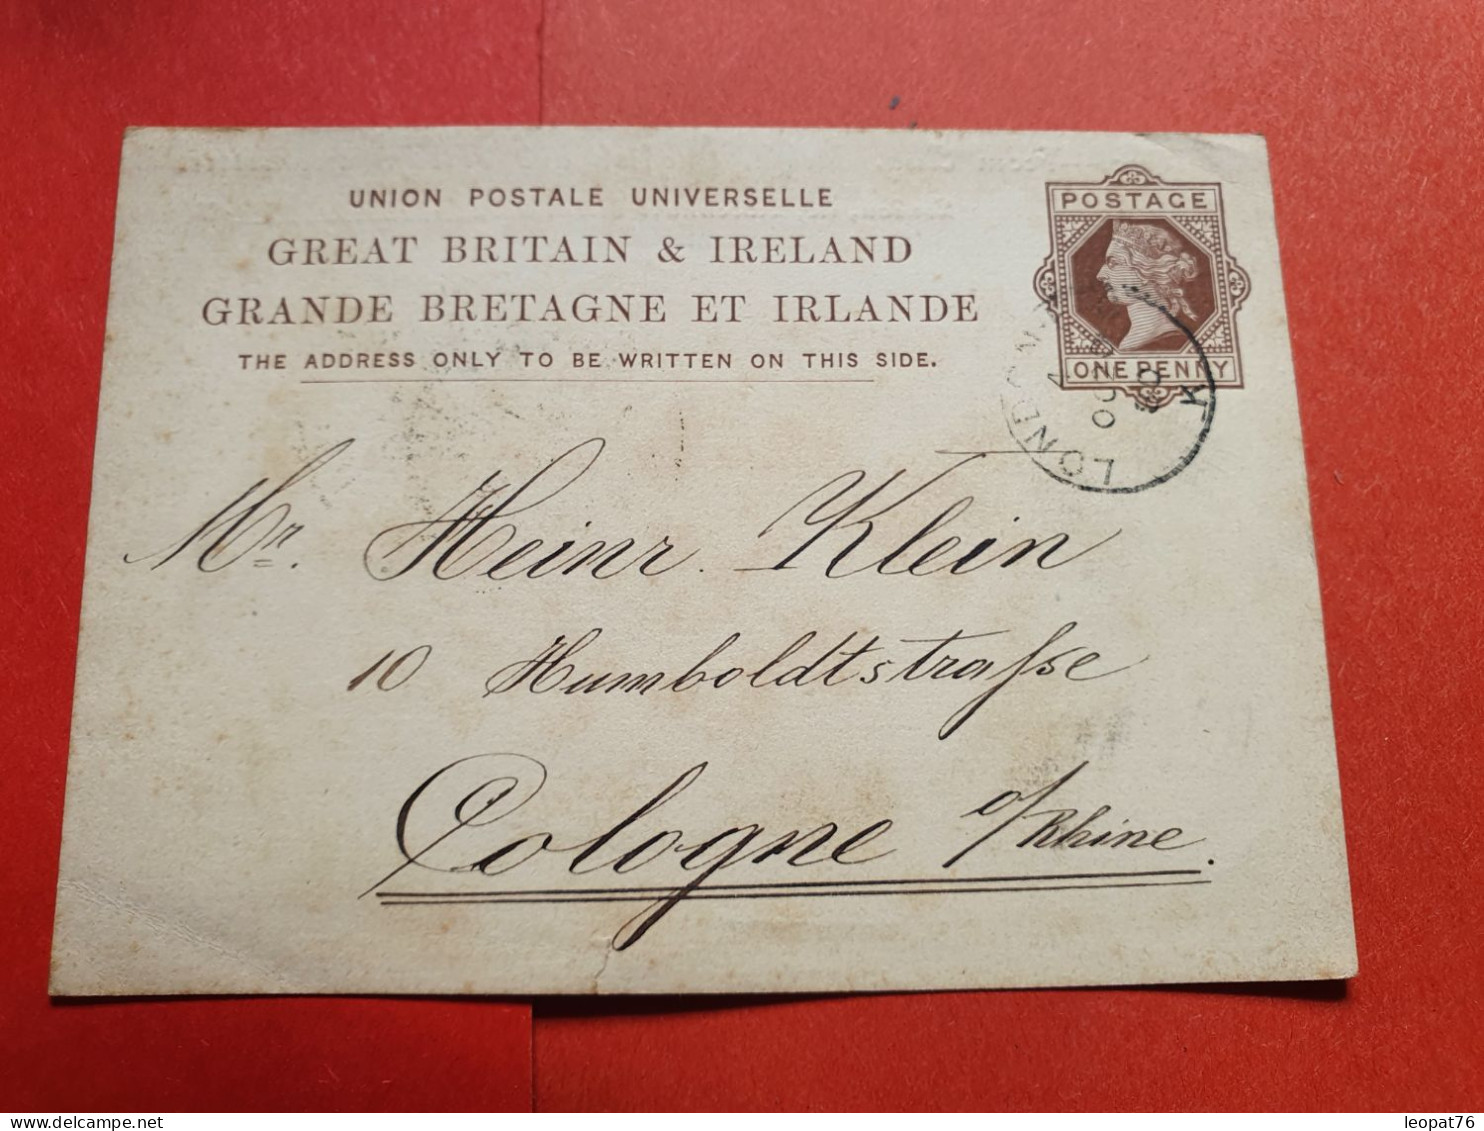 UNION POSTALE UNIVERSELLE
GREAT BRITAIN & IRELAND
GRANDE BRETAGNE ET IRLANDE
THE ADDRESS ONLY TO BE WRITTEN ON THIS SIDE.
POSTAGE
ONE PENNY
LONDON
Mr. Heinr. Klein
10 Humboldtstraſse
Cologne o/Rhine.
delcampe.net
leopat76